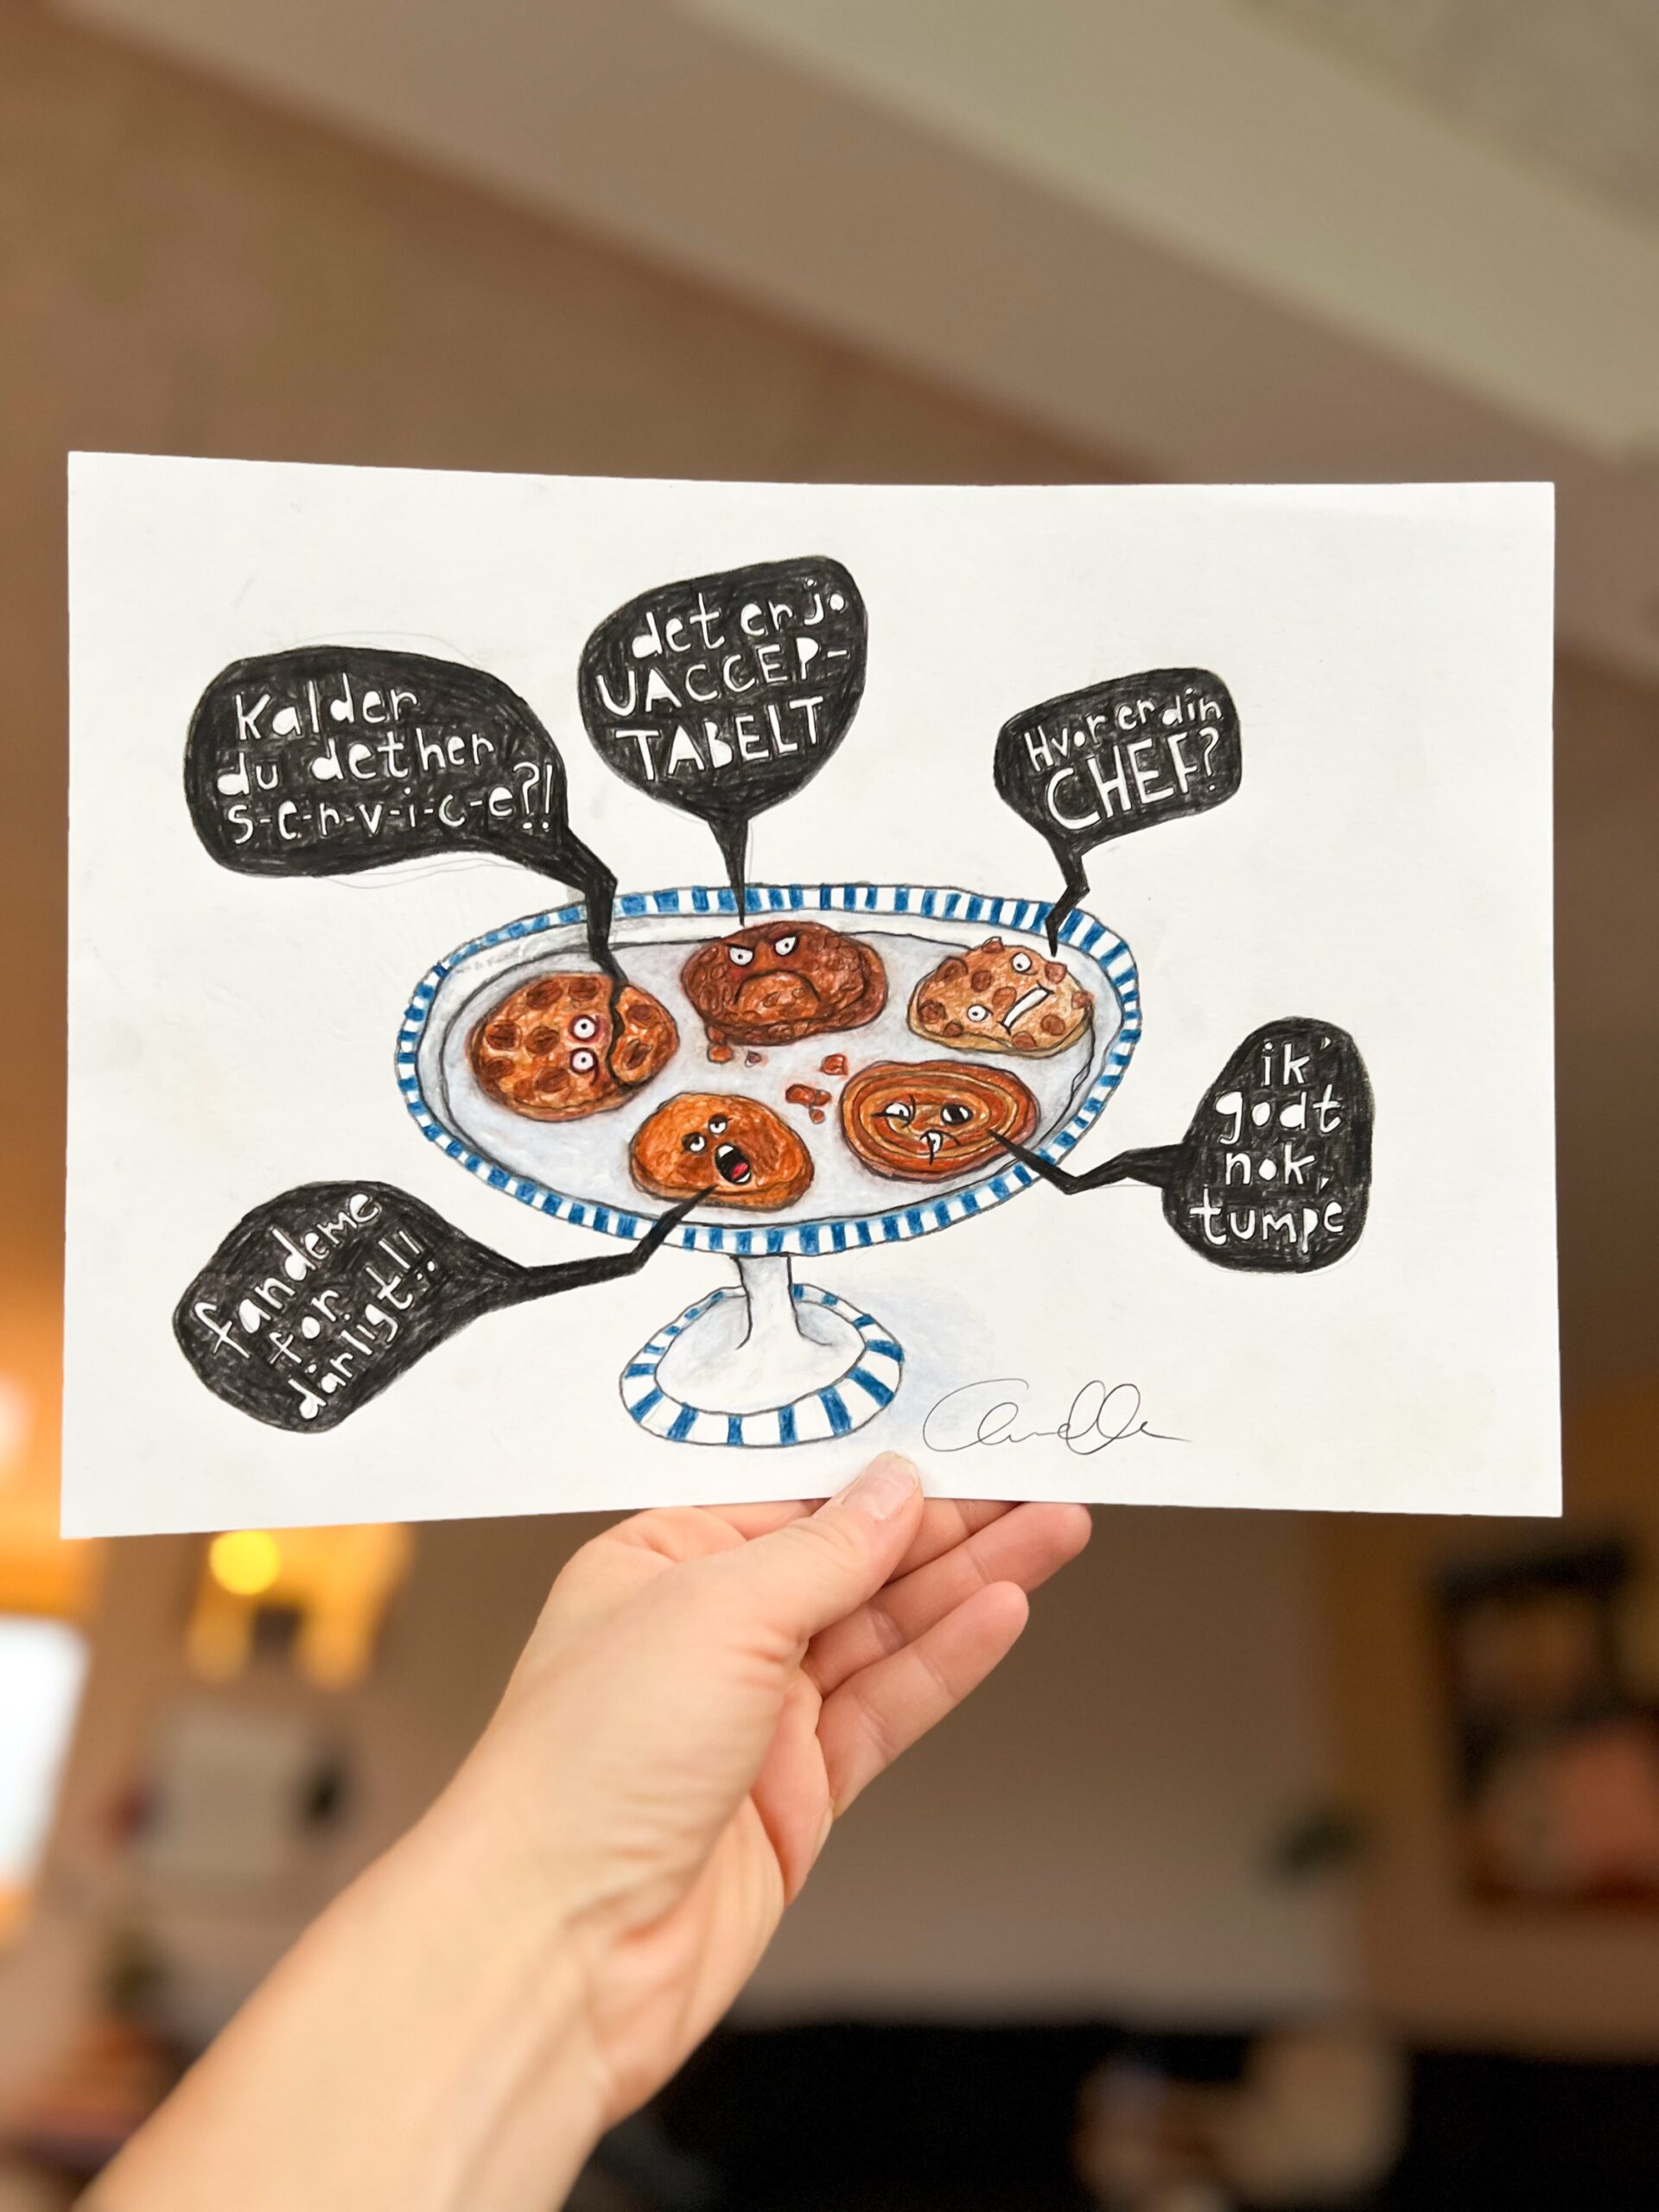 Kalder
du det her
s-e-r-v-i-c-e?!
det er jo
UACCEP-
TABELT
Hvor er din
CHEF?
ik'
godt
nok,
tumpe
fandeme
for
dårligt!!